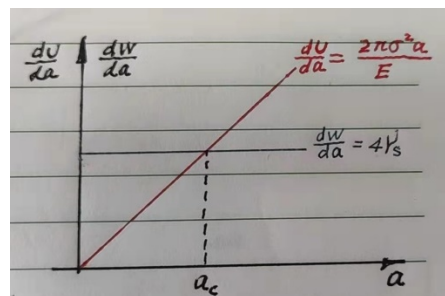 dU/da dW/da
dU/da = 2πσ²a/E
dW/da = 4γₛ
a_c a